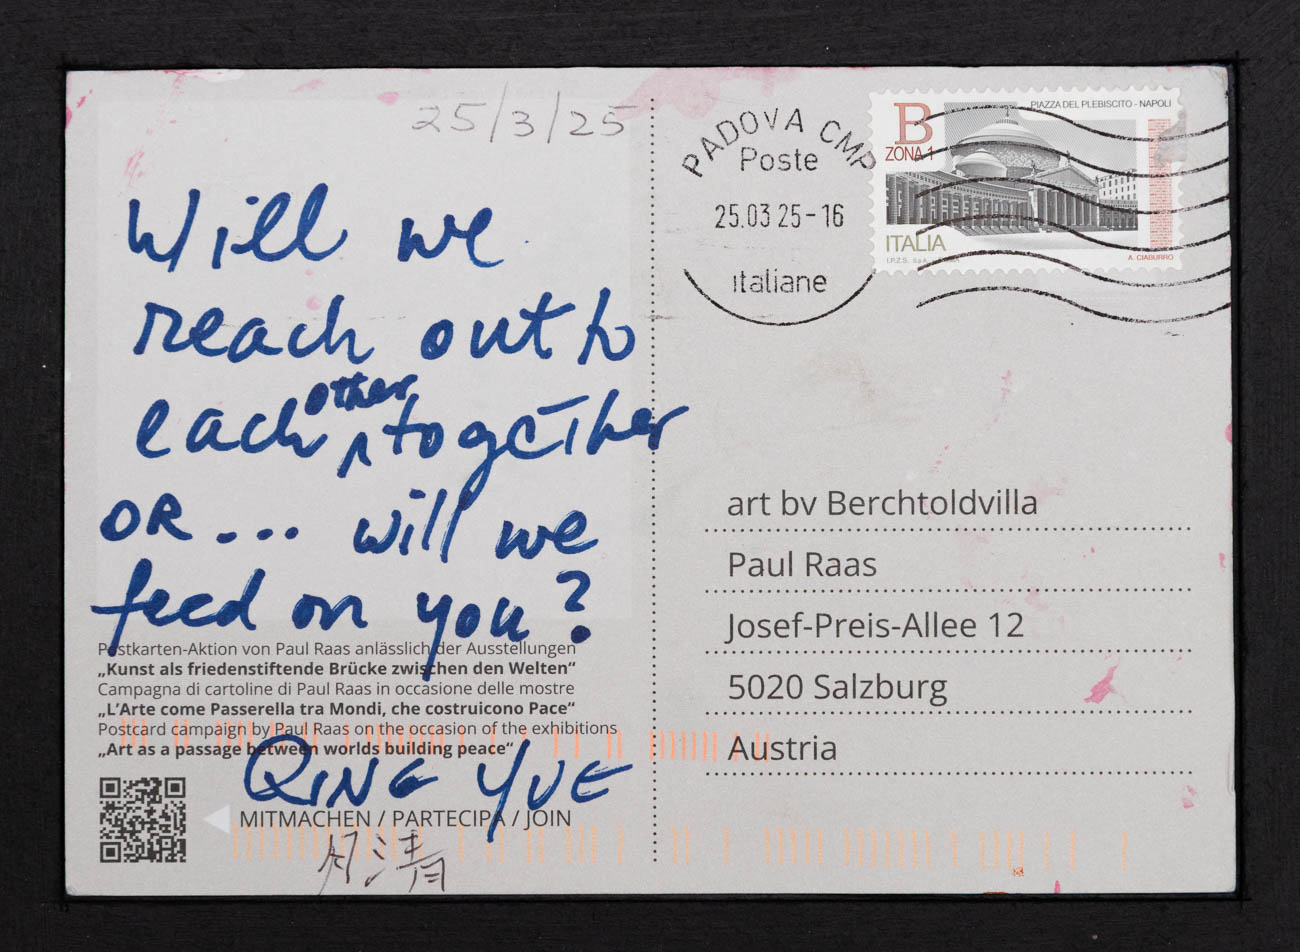 25/3/25
Will we
reach out to
each other together
OR... will we
feed on you?
Postkarten-Aktion von Paul Raas anlässlich der Ausstellungen
„Kunst als friedenstiftende Brücke zwischen den Welten“
Campagna di cartoline di Paul Raas in occasione delle mostre
„L’Arte come Passerella tra Mondi, che costruicono Pace“
Postcard campaign by Paul Raas on the occasion of the exhibitions
„Art as a passage between worlds building peace“
QING YUE
MITMACHEN / PARTECIPA / JOIN
清
PADOVA CMP
Poste
25.03 25-16
italiane
PIAZZA DEL PLEBISCITO - NAPOLI
B
ZONA 1
ITALIA
I.P.Z.S. S.p.A.
A. CIABURRO
art bv Berchtoldvilla
Paul Raas
Josef-Preis-Allee 12
5020 Salzburg
Austria